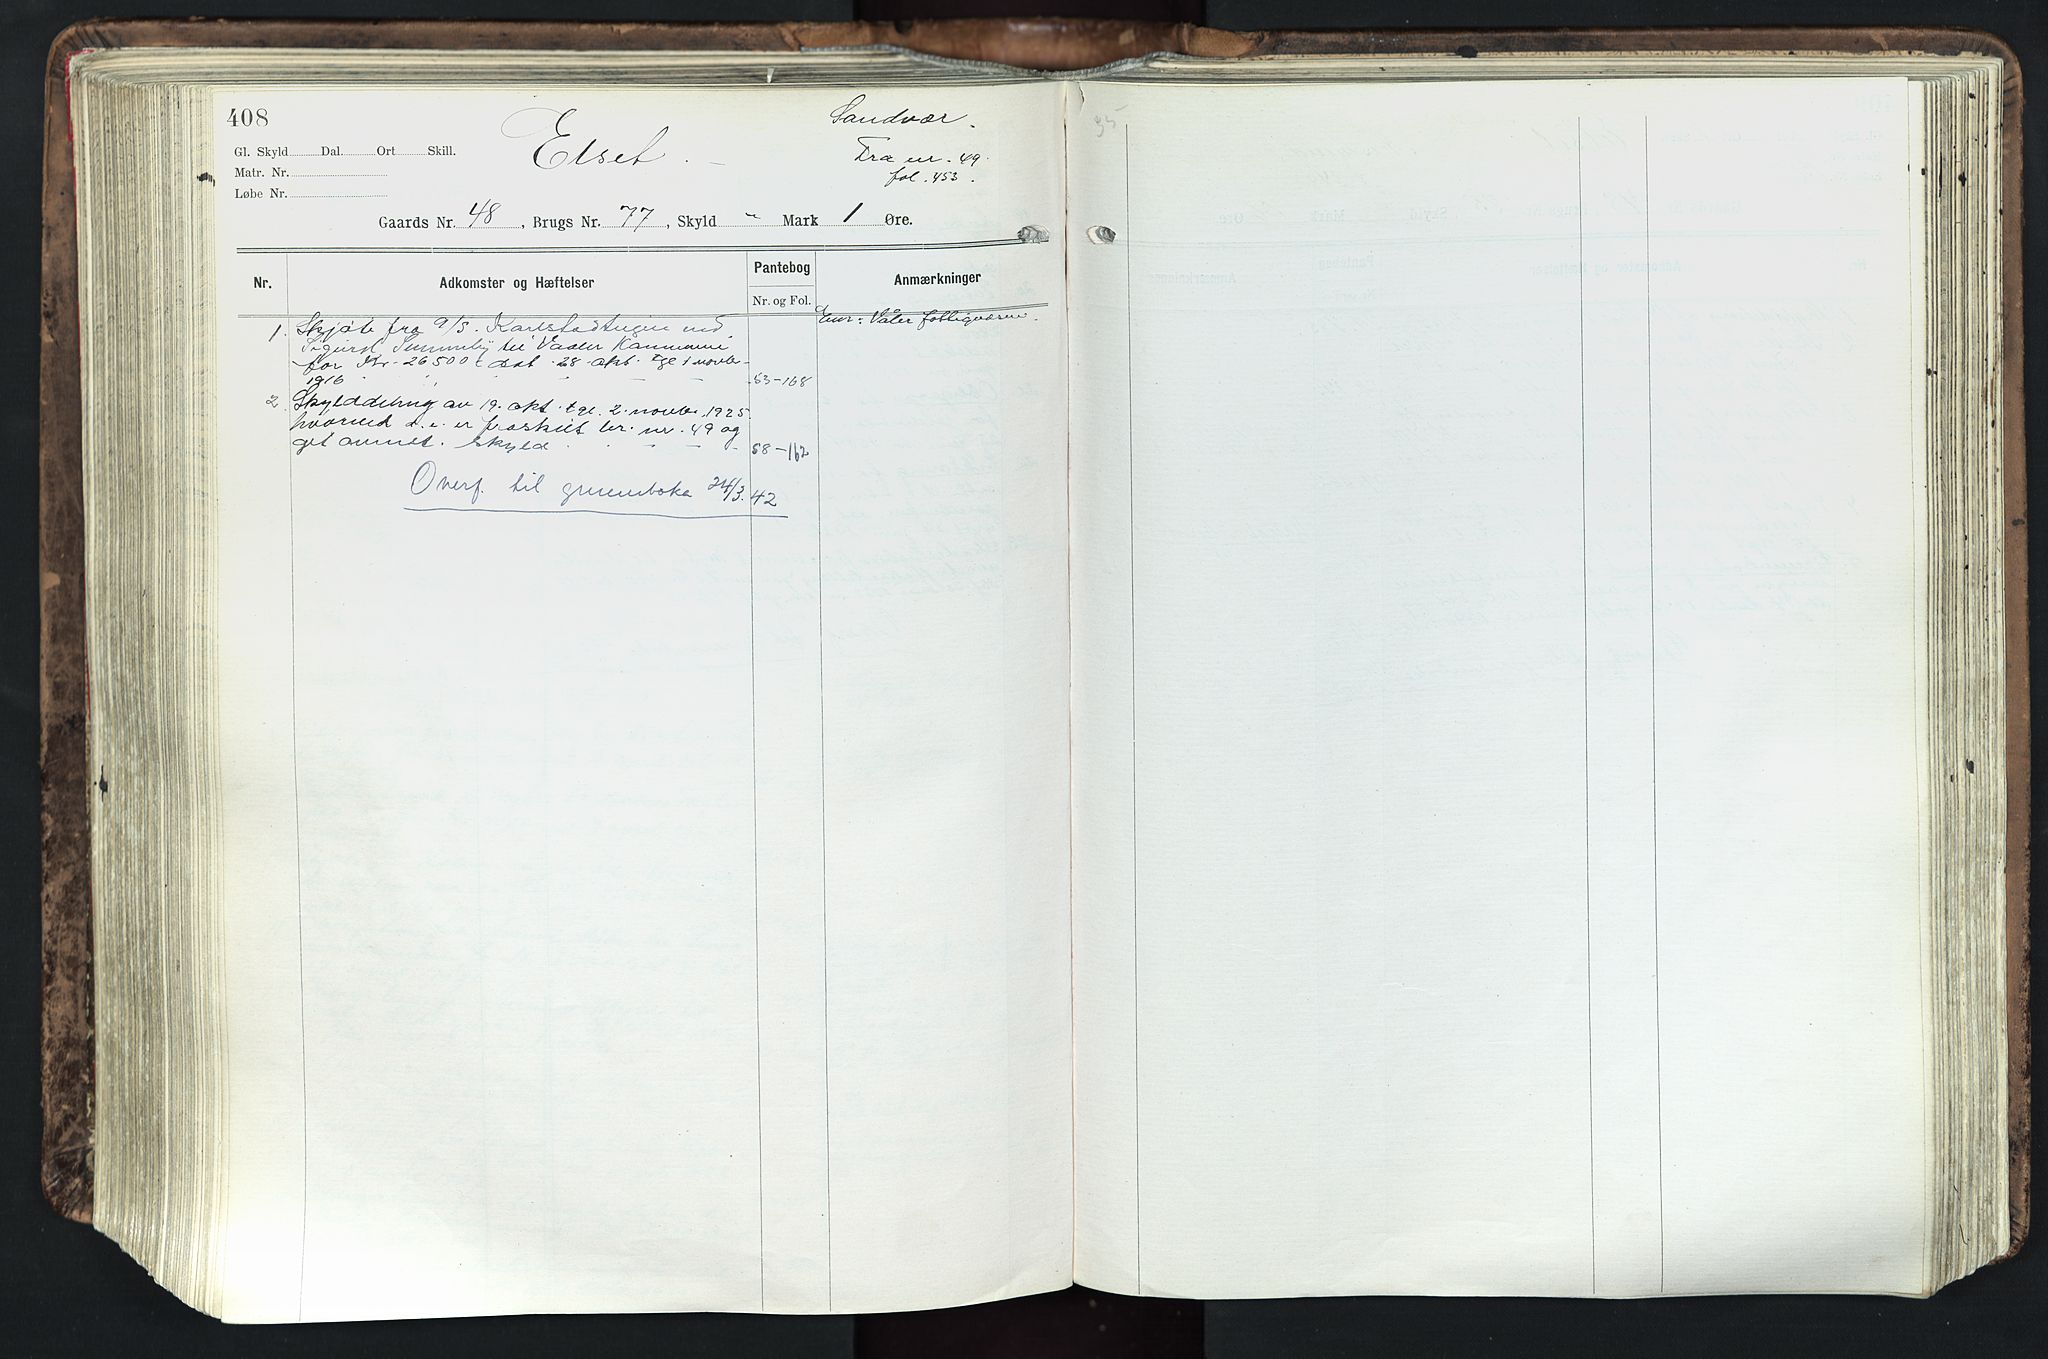 408
Elset.
Sandvær.
Gl. Skyld Dal. Ort Skill.
Fra nr. 49.
Matr. Nr.
fol. 453.
Løbe Nr.
Gaards Nr. 48, Brugs Nr. 77, Skyld " Mark 1 Øre.
Nr.
Adkomster og Hæftelser
Pantebog
Nr. og Fol.
Anmærkninger
1. Skjøte fra A/S. ved
Sigurd til Vaaler Kommune
for Kr. 26500 dat. 28 okt. tgl. 1 novbr
1916 53-168
Våler
2. Skylddeling av 19. okt. tgl. 2. novbr. 1925
hvorved d. e. er fraskilt br. nr. 49 og
git annet. skyld 58-162
Overf. til grunnboka 24/3. 42